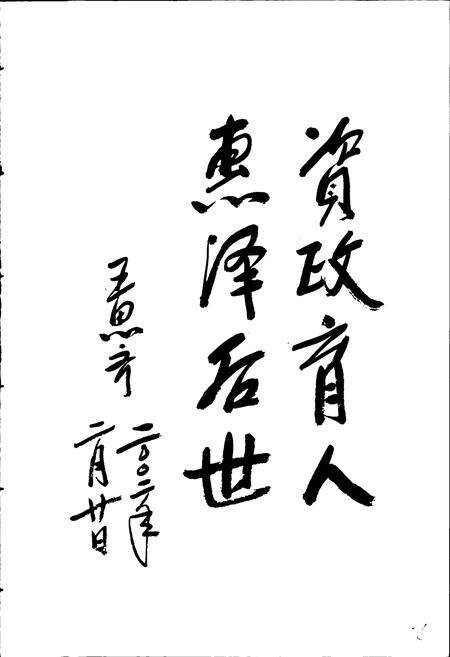 资政育人
惠泽后世
王思齐
二〇〇二年
二月廿日